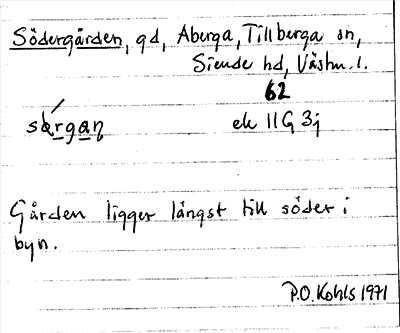 Södergården, gd, Aberga, Tillberga sn,
Siende hd, Västm. l.
62
ek 11G 3j
Gården ligger längst till söder i
byn.
P.O. Kohls 1971